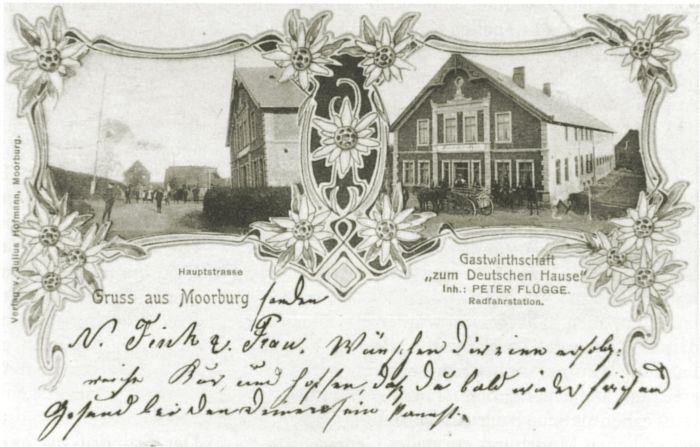 Verlag v. Julius Hofmann, Moorburg.
Hauptstrasse
Gruss aus Moorburg
Gastwirthschaft
„zum Deutschen Hause“
Inh.: PETER FLÜGGE.
Radfahrstation.
senden
N. Fink u. Frau. Wünschen Dir einen erfolg=
reiche Kur, und hoffen, daß Du bald wieder frisch und
Gesund bei den Deinen sein kannst.